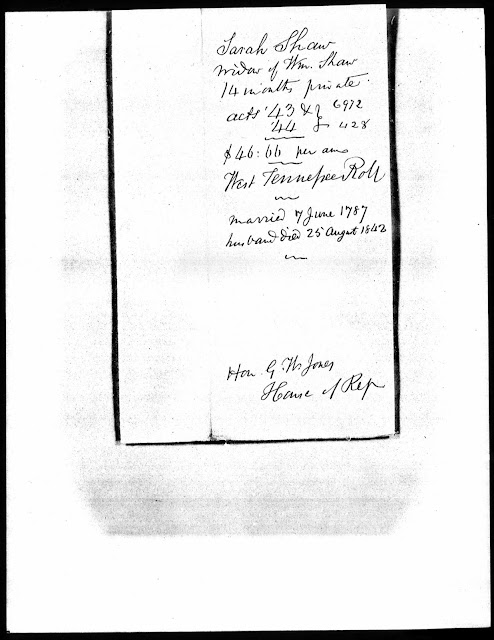 Sarah Shaw
widow of Wm. Shaw
14 months private
acts '43 & 6972
'44 428
$46:66 per ann
West Tennessee Roll
married 7 June 1787
husband died 25 August 1842
Hon. G. W. Jones
House of Rep